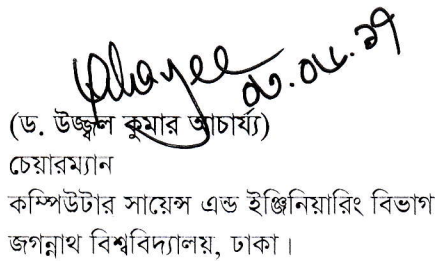 (ড. উজ্জ্বল কুমার আচার্য্য)
চেয়ারম্যান
কম্পিউটার সায়েন্স এন্ড ইঞ্জিনিয়ারিং বিভাগ
জগন্নাথ বিশ্ববিদ্যালয়, ঢাকা।